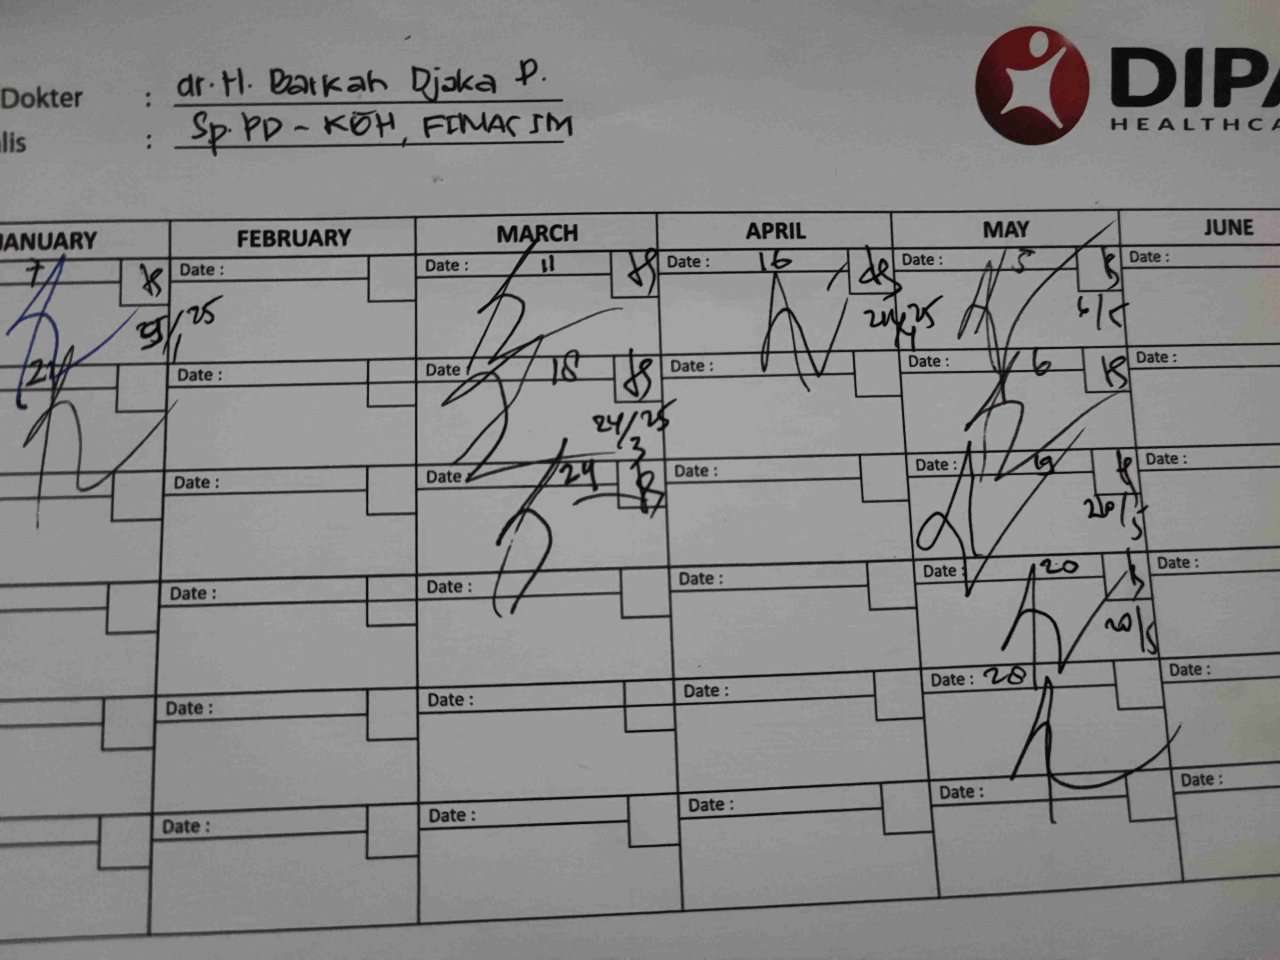 Dokter : dr. H. Barkah Djoko P.
lis : Sp. PD - KOH, FINACIM
DIPA
HEALTHCA
JANUARY FEBRUARY MARCH APRIL MAY JUNE
7 Date : Date : 11 Date : 16 Date : 5 Date :
25/25 21/25 4 6/5
21 Date : Date : 18 Date : Date : 6 Date :
24/25 3
Date : Date : 24 Date : Date : 19 Date :
20/5
Date : Date : Date : Date : 20 Date :
20/5
Date : Date : Date : Date : 28 Date :
Date : Date : Date : Date : Date :